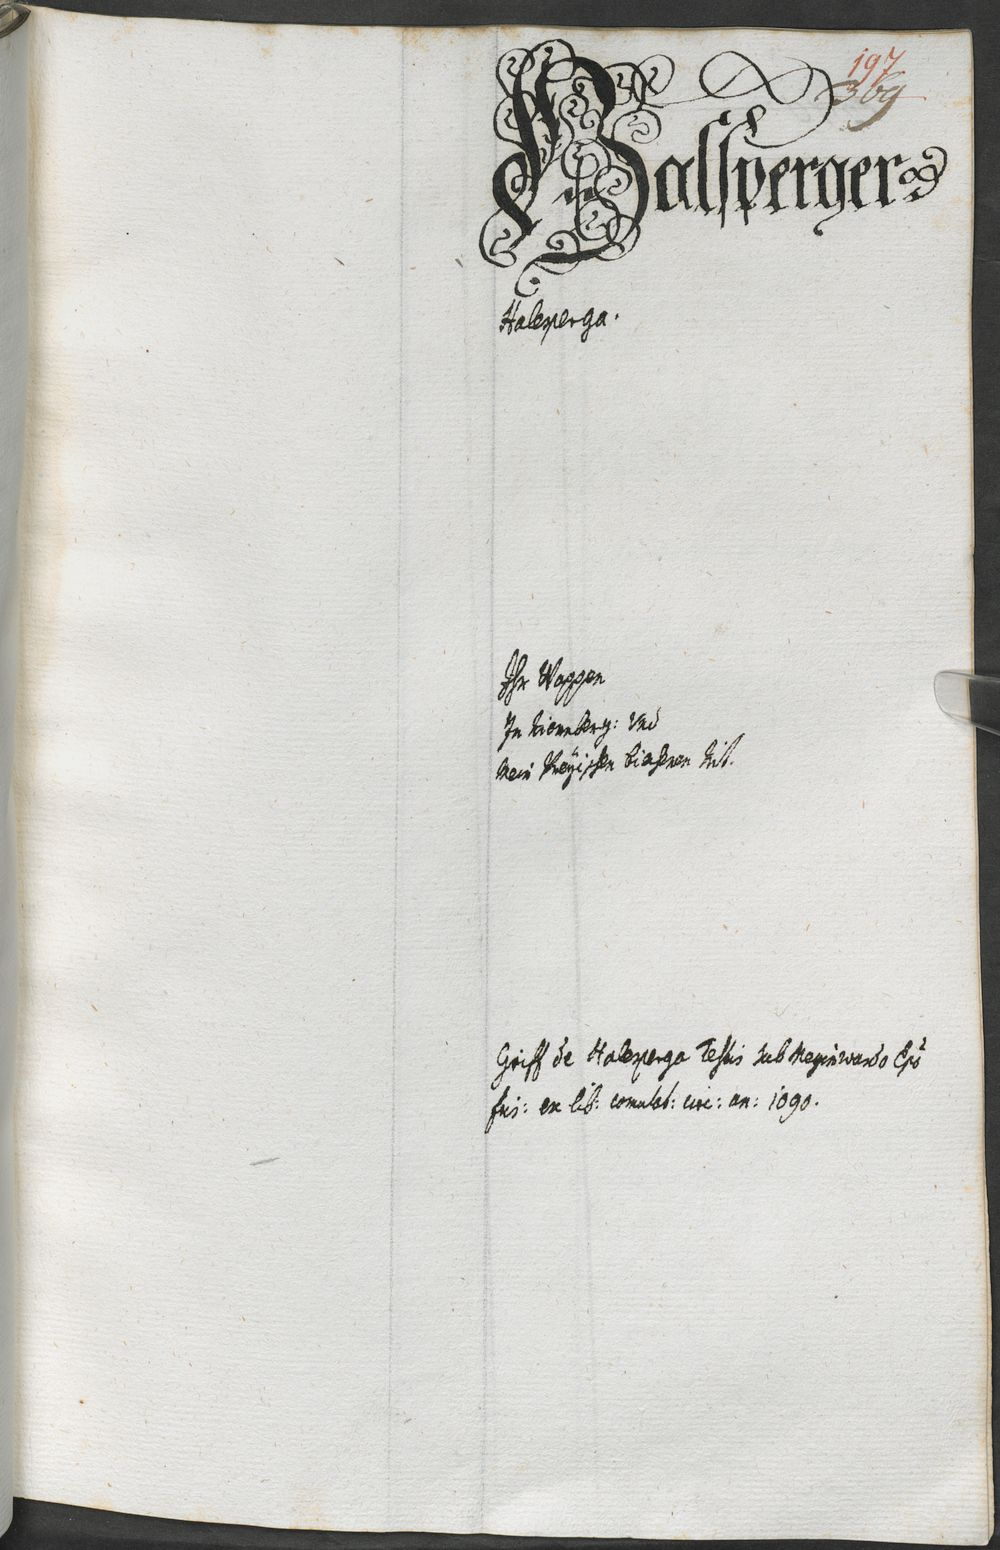 197
369
Halsperger
Halsperga.
Ihr Wappen
In Nürnberg: Vnd
Mein
Griff de Halsperga Testis sub Meginwardo Epō
fris: ex lib: comutat: circ: an: 1090.